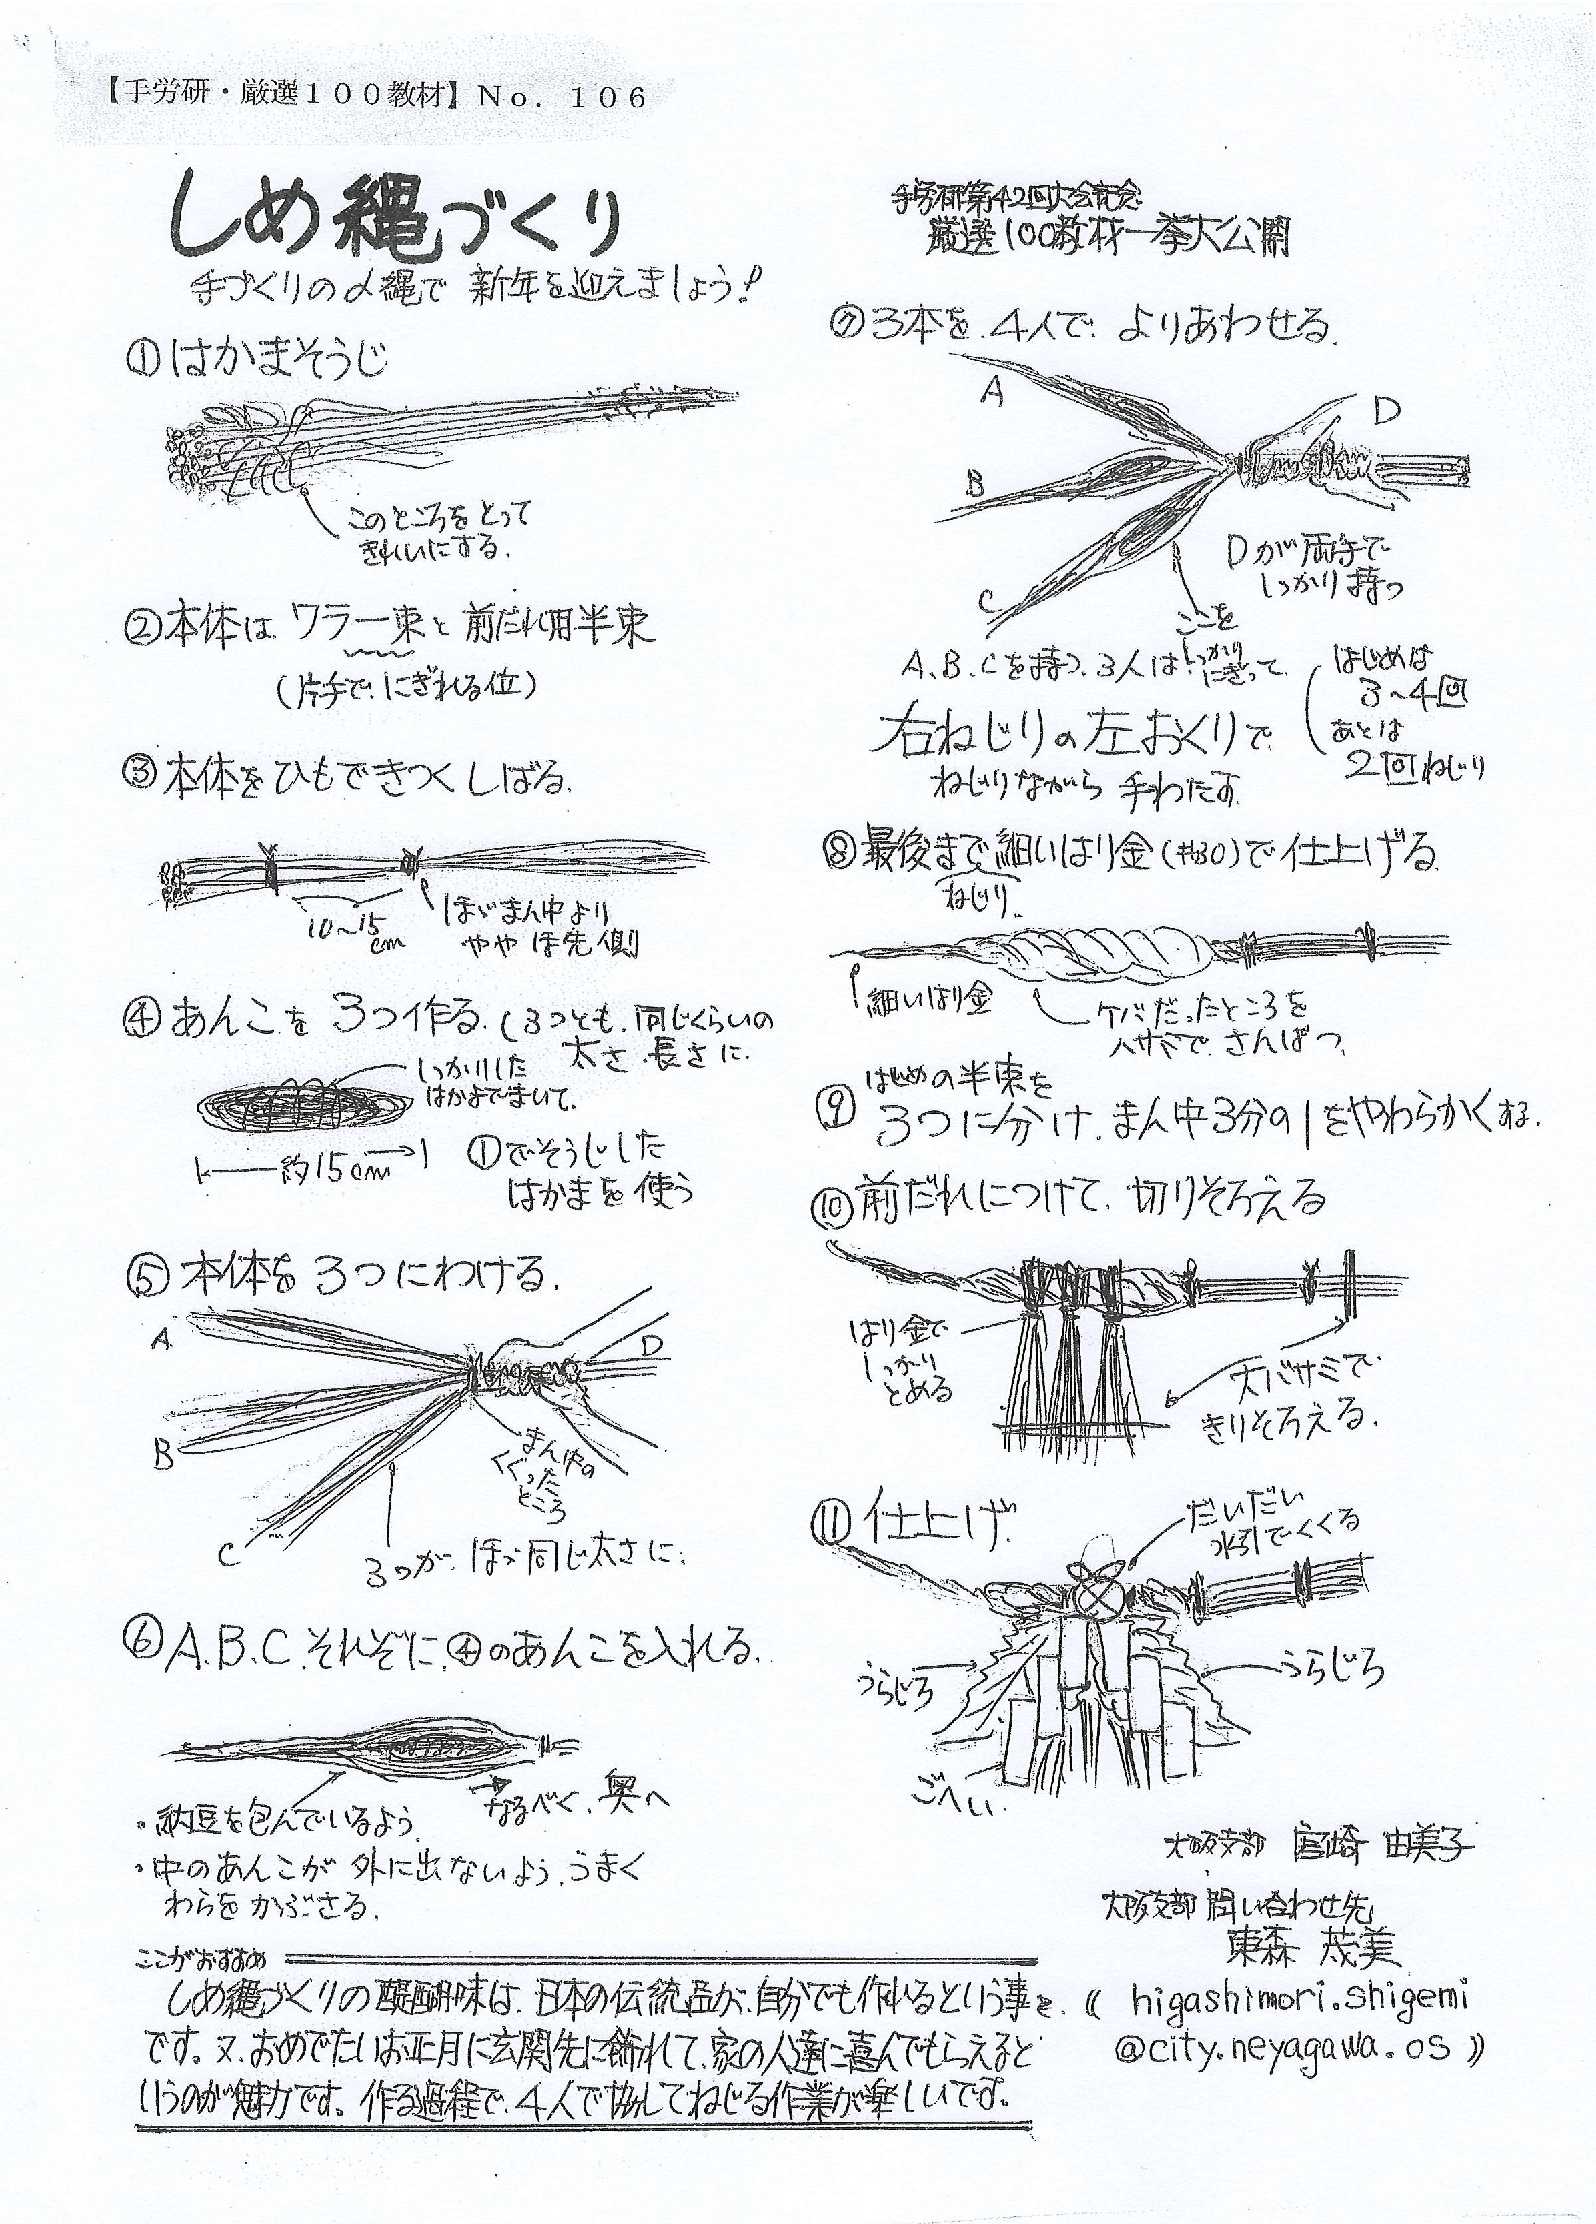 【手労研・厳選１００教材】Ｎｏ．１０６
しめ縄づくり
手づくりの〆縄で 新年を迎えましょう!
①はかまそうじ
このところをとって
きれいにする.
②本体は ワラ一束と 前だれ用半束
(片手で、にぎれる位)
③本体をひもできつくしばる.
10〜15cm
ほゞまん中より
やや ほ先側
④あんこを 3つ作る.(3つとも、同じくらいの
太さ、長さに.
しっかりした
はかまでまいて.
約15cm
①でそうじした
はかまを使う
⑤本体を 3つにわける.
A
B
C
D
まん中の
くくった
ところ
3つが、ほゞ同じ太さに.
⑥A.B.C.それぞに、④のあんこを入れる.
なるべく、奥へ
・納豆を包んでいるよう.
・中のあんこが 外に出ないよう、うまく
わらを かぶさる.
手労研第42回大会記念
厳選100教材一挙大公開
⑦3本を、4人で、よりあわせる.
A
B
C
D
Dが両手で
しっかり持つ
ここを
しっかり
にぎって
A、B、Cを持つ、3人は
右ねじりの左おくりで
ねじりながら 手わたす.
はじめは
3〜4回
あとは
2回ねじり
⑧最後まで細いはり金(#30)で仕上げる.
ねじり.
細いはり金
ケバだったところを
ハサミで、さんぱつ.
⑨はじめの半束を
3つに分け、まん中3分の1をやわらかくする.
⑩前だれにつけて、切りそろえる
はり金で
しっかり
とめる
大バサミで
きりそろえる.
⑪仕上げ.
だいだい
水引でくくる
うらじろ
うらじろ
ごへい.
大阪支部 宮崎 由美子
大阪支部 問い合わせ先
東森 茂美
《 higashimori.shigemi
@city.neyagawa.os 》
ここがおすすめ
しめ縄づくりの醍醐味は、日本の伝統品が、自分でも作れるという事
です。又、おめでたいお正月に玄関先に飾れて、家の人達に喜んでもらえると
いうのが魅力です。作る過程で、4人で協してねじる作業が楽しいです。